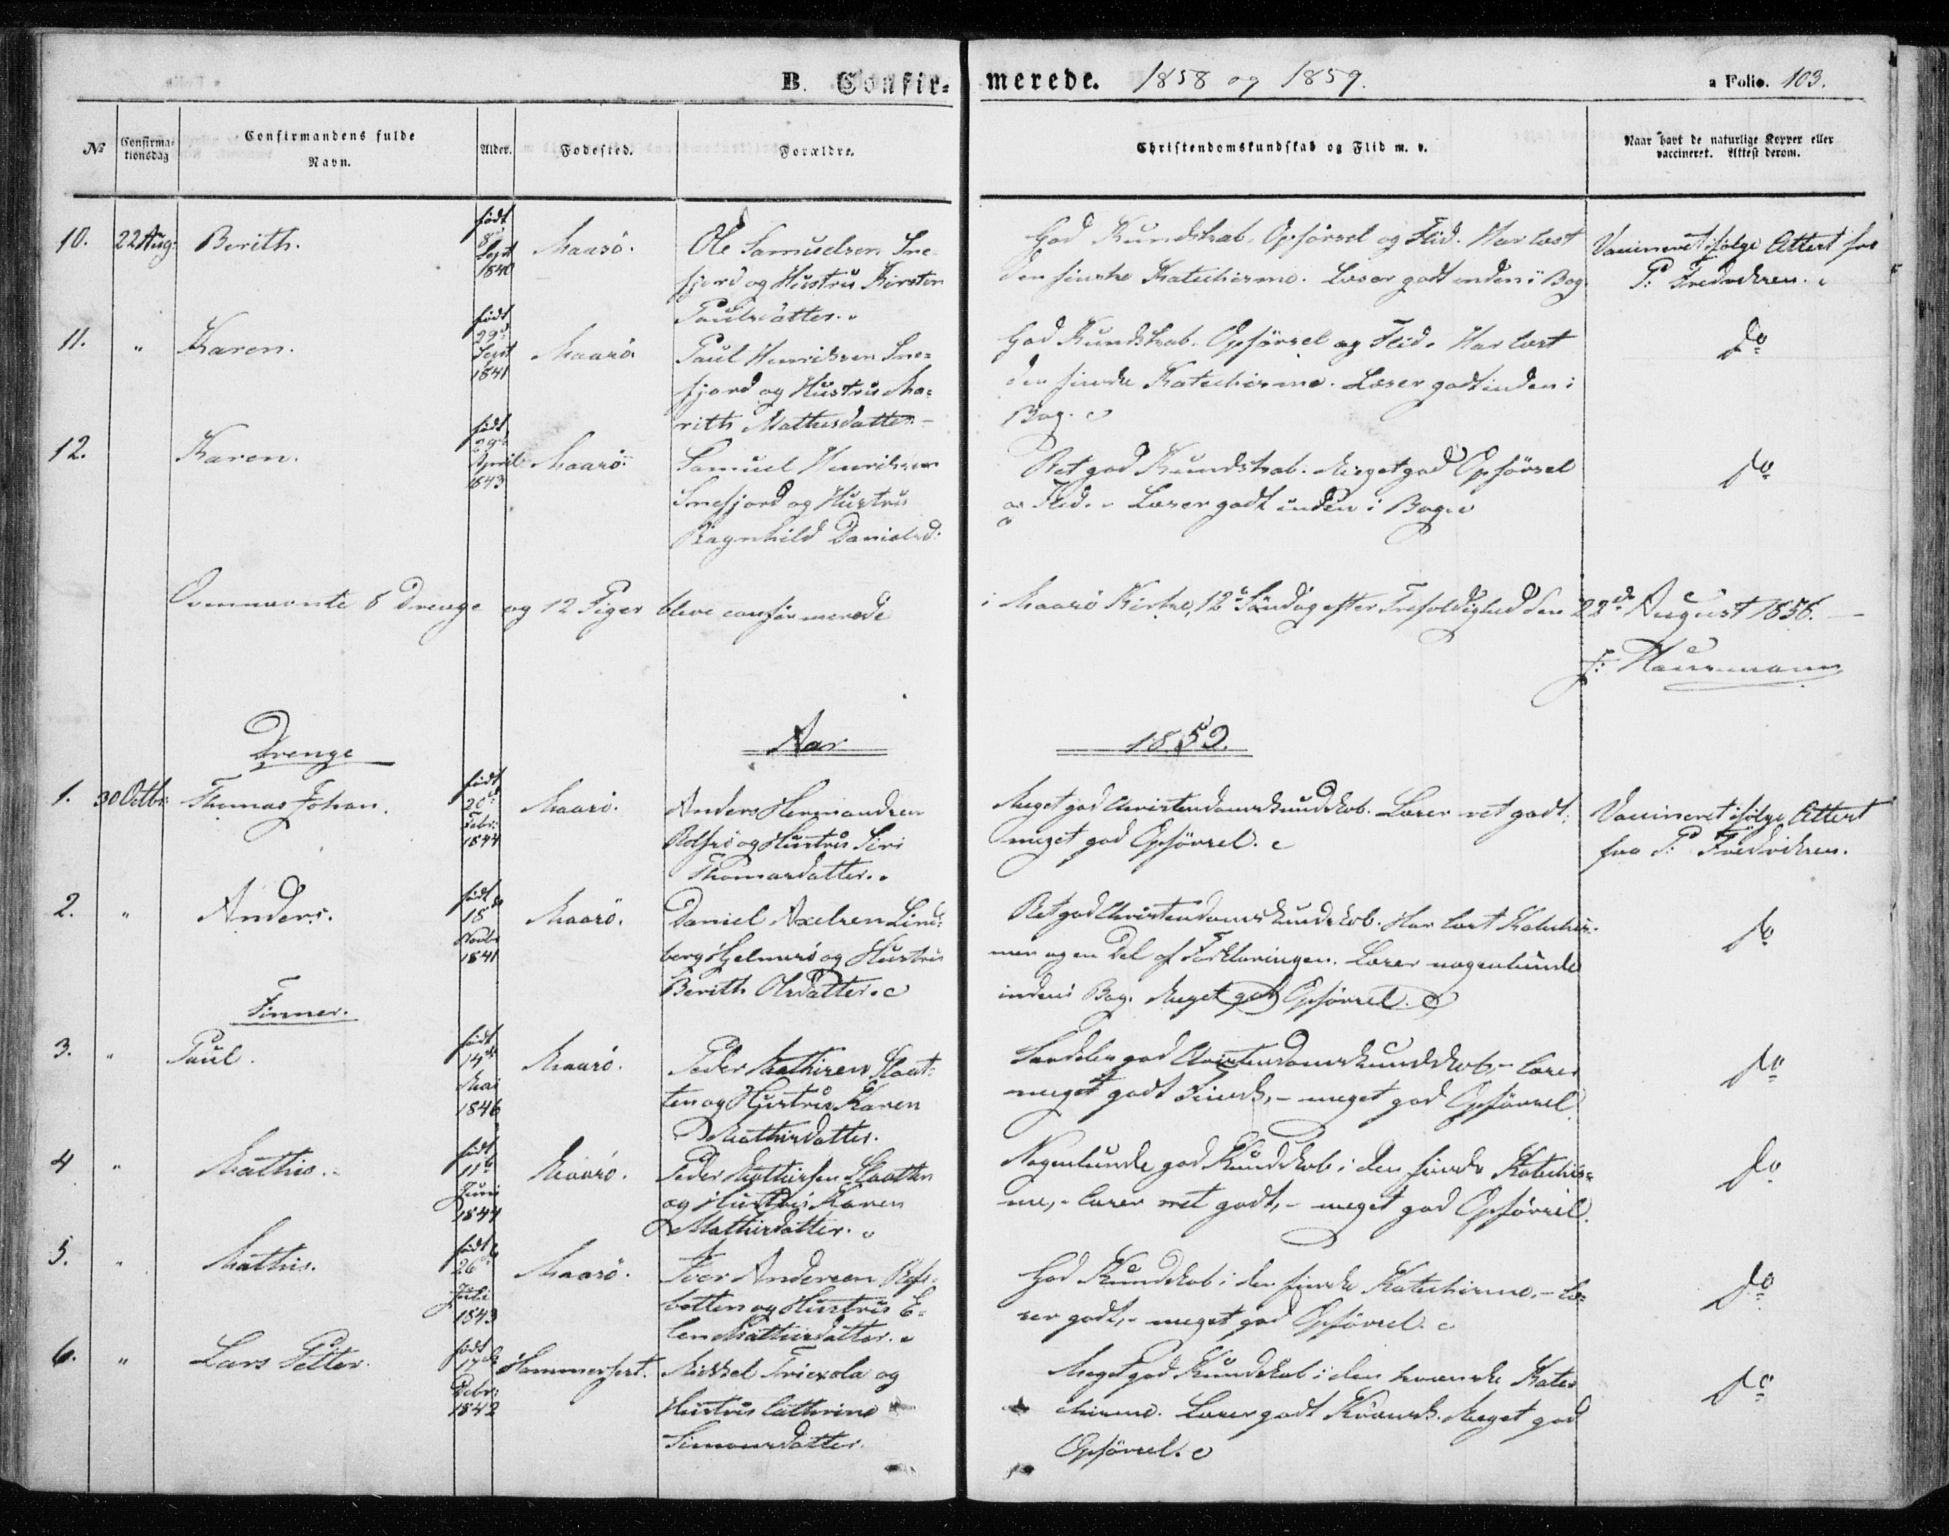 B. Confir-merede. 1858 og 1859.
a Folio. 103.
No
Confirma-tionsdag
Confirmandens fulde Navn.
Alder.
Fødested.
Forældre.
Christendomskundskab og Flid m. v.
Naar havt de naturlige Kopper eller vaccineret. Attest derom.
10. 22 Aug: Berith.
født 8de Sept 1840
Maasö.
Ole Samuelsen Sne-
fjord og Hustru Kirsten
Paulsdatter.
God Kundskab, Opförsel og Flid. Har læst
den finske Katechisme. Læser godt inden i Bog
Vaccineret ifølge Attest fra
P: Fredriksen.
11. " Karen.
født 29de Sept 1841
Maasö
Paul Henriksen Sne-
fjord og Hustru Ma-
rith Mathisdatter. -
God Kundskab. Opförsel og Flid. Har læst
den finske Katechisme. Læser godt inden i
Bog.
do
12. Karen.
født 29de April 1843
Maasö.
Samuel Henriksen
Snefjord og Hustru
Ragnhild Danielsd:
Ret god Kundskab. Meget god Opförsel
og Flid. - Læser godt inden i Bog.
do
Ovennævnte 8 Drenge og 12 Piger bleve confirmerede i Maasö Kirke, 12te Söndag efter Trefoldighed den 22de August 1858. -
Drenge
Aar 1859.
1. 30 Octbr: Thomas Johan.
født 20de Febr: 1844
Maasö.
Anders Hermandsen
Rolfsö og Hustru Siri
Thomasdatter.
Meget god Christendomskundskab. Læser ret godt,
meget god Opförsel.
Vaccineret ifølge Attest
fra P: Fredriksen.
2. " Anders.
født 18de Novbr 1841
Maasö.
Daniel Axelsen Lind-
berg Hjelmsö og Hustru
Berith Olsdatter.
Ret god Christendomskundskab. Har læst Katechis-
men og en Del af Forklaringen. Læser nogenlunde
inden i Bog. Meget god Opförsel.
do
Finner.
3. " Paul.
født 14de Mai 1846
Maasö.
Peder Mathisen Slaat-
ten og Hustru Karen
Mathisdatter.
Særdeles god Christendomskundskab, - læser
meget godt Finsk, - meget god Opförsel
do
4 " Mathis.
født 11te Juni 1844
Maasö.
Peder Mathisen Slaatten
og Hustru Karen
Mathisdatter.
Nogenlunde god Kundskab i den finske Katechis-
me, - læser ret godt, - meget god Opförsel.
do
5. " Mathis.
født 26de Juli 1843
Maasö.
Iver Andersen Refs-
botten og Hustru E-
len Mathisdatter.
God Kundskab i den finske Katechisme, - læ-
ser godt, - meget god Opförsel.
do
6. " Lars Petter.
født 17de Debr: 1842
Hammerfest.
Mikkel og
Hustru Cathrine
Simonsdatter.
Meget god Kundskab i den kvænske Kate-
chisme. Læser godt Kvænsk. Meget god
Opförsel.
do